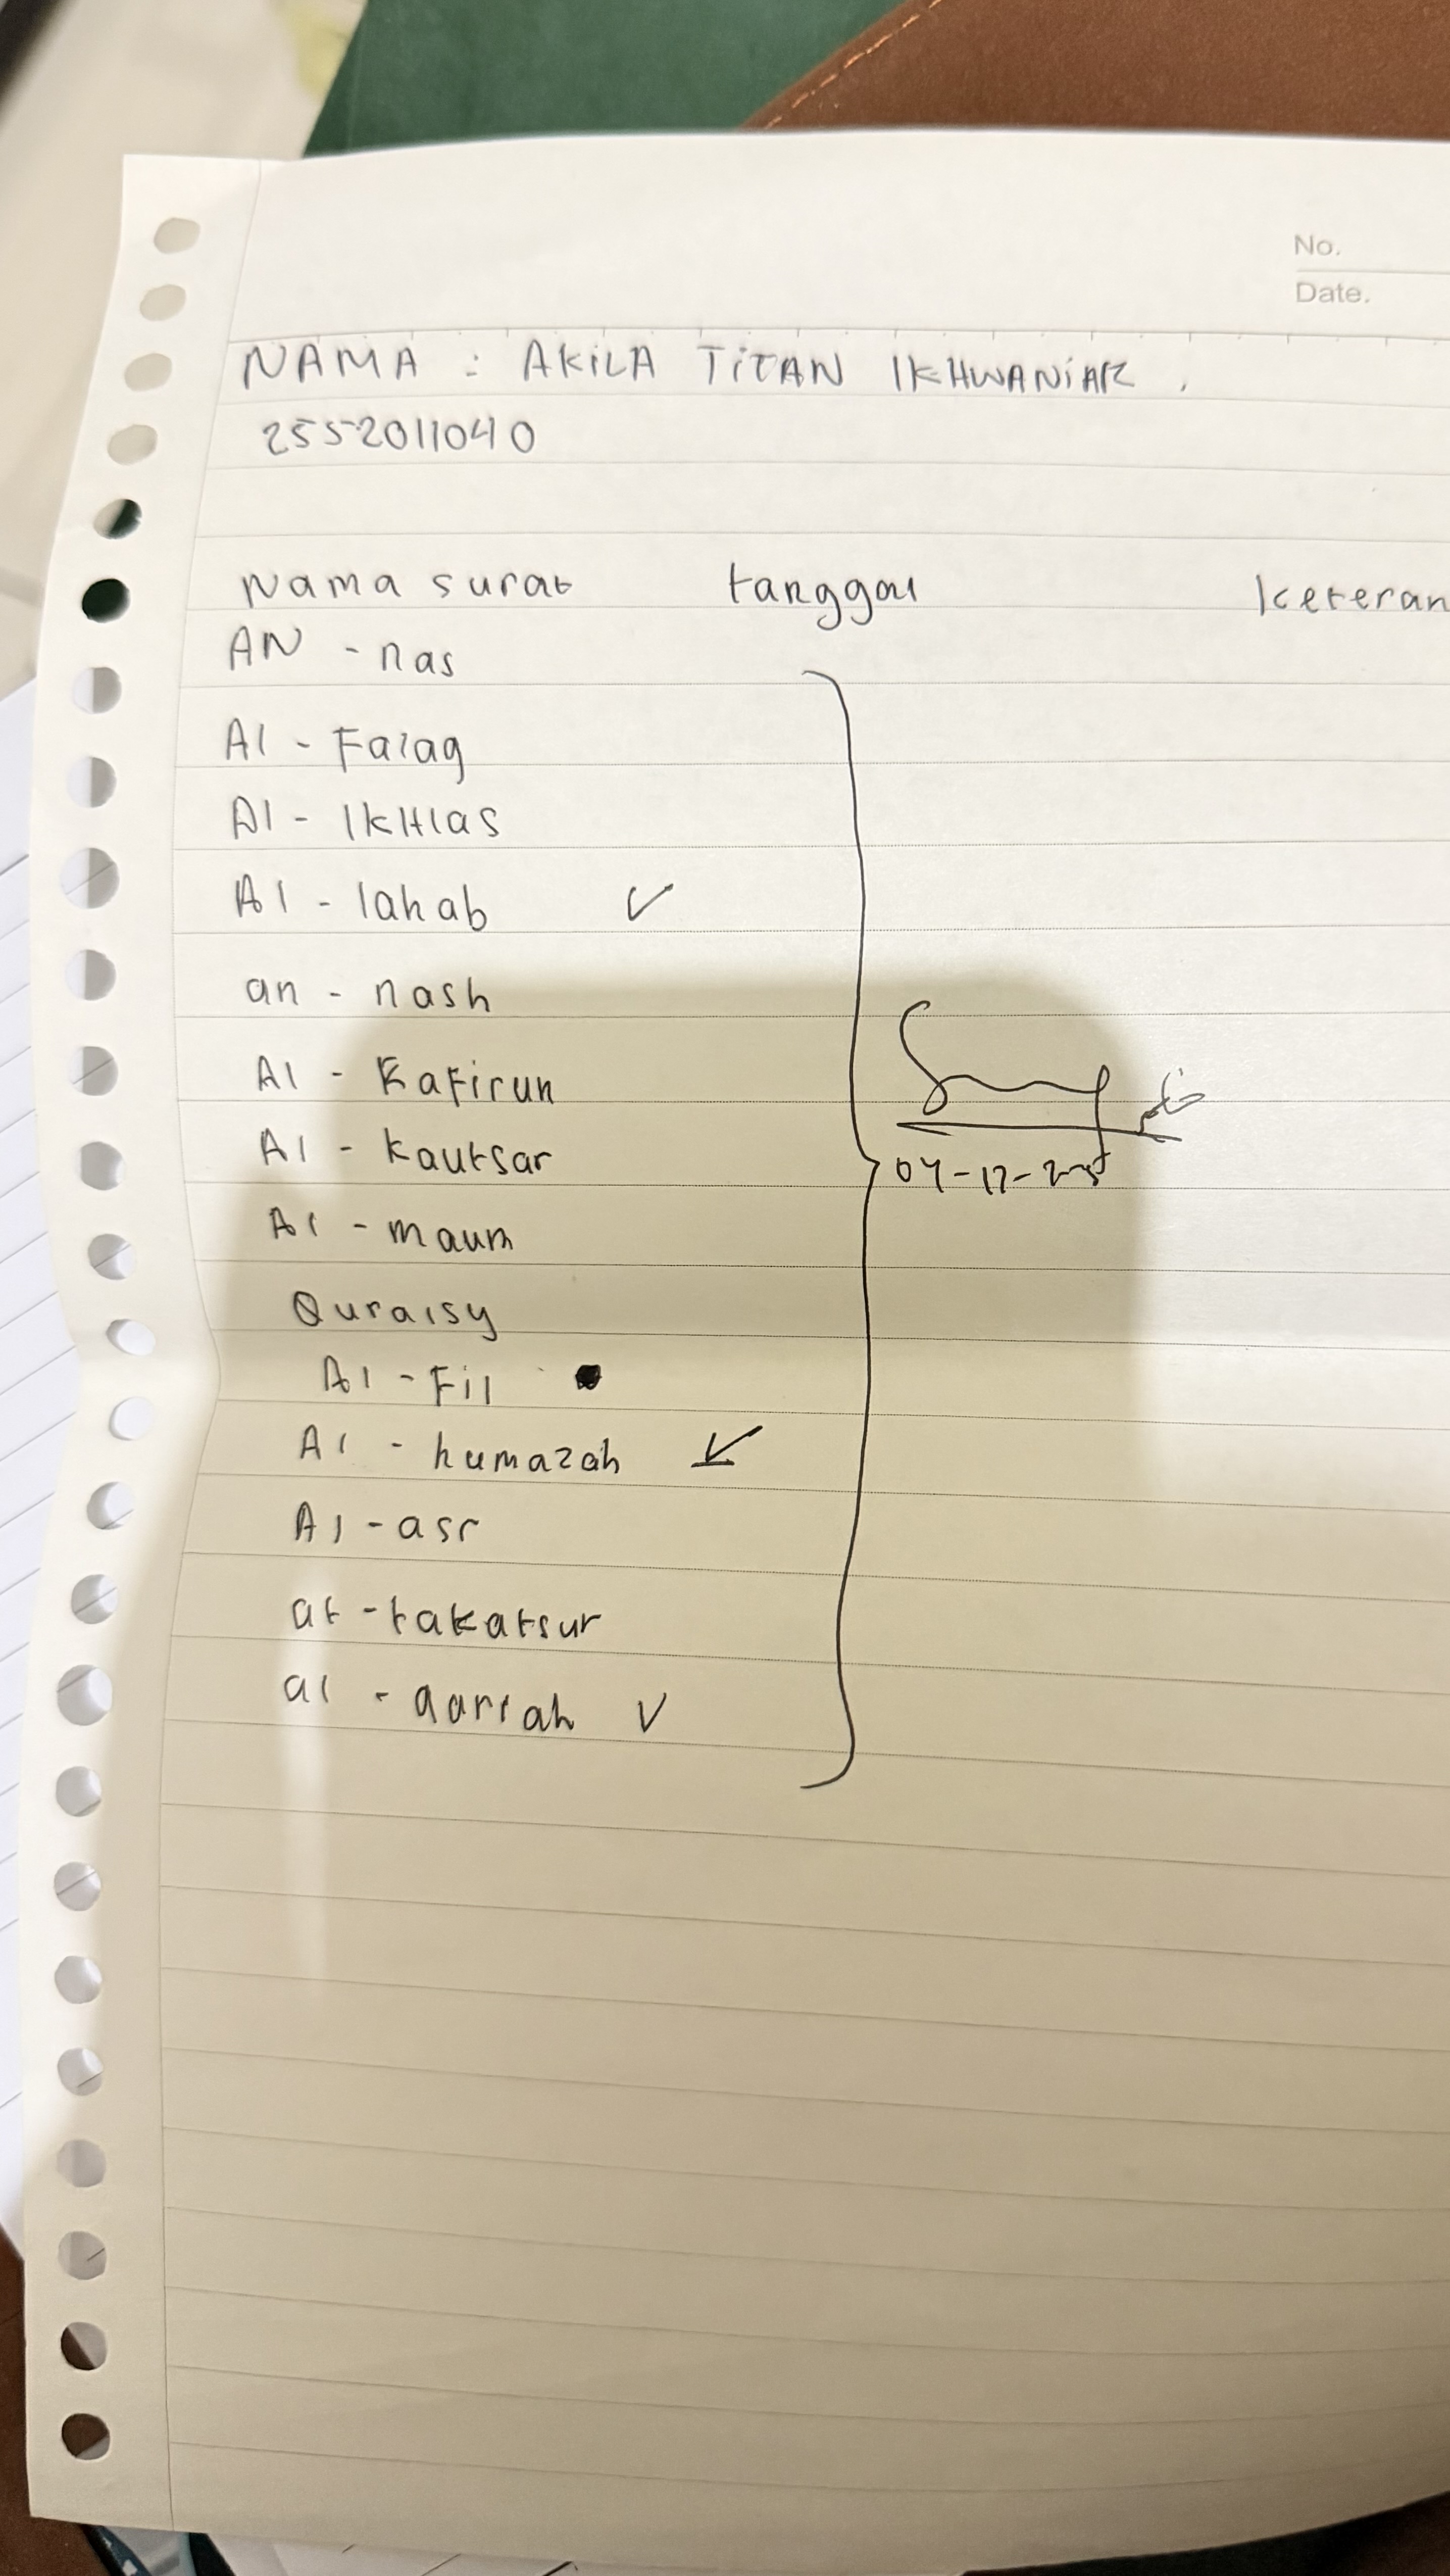 No.
Date.
NAMA : AKiLA TiTAN IKHWANiAR .
2552011040
Nama surat tanggal keteran
AN - nas
Al - Falaq
Al - IKHlas
Al - lahab ✓
an - nash
Al - Kafirun
Al - kautsar
Al - maum
Quraisy
Al - Fil
Al - humazah ✓
Al - asr
at - takatsur
al - qariah ✓